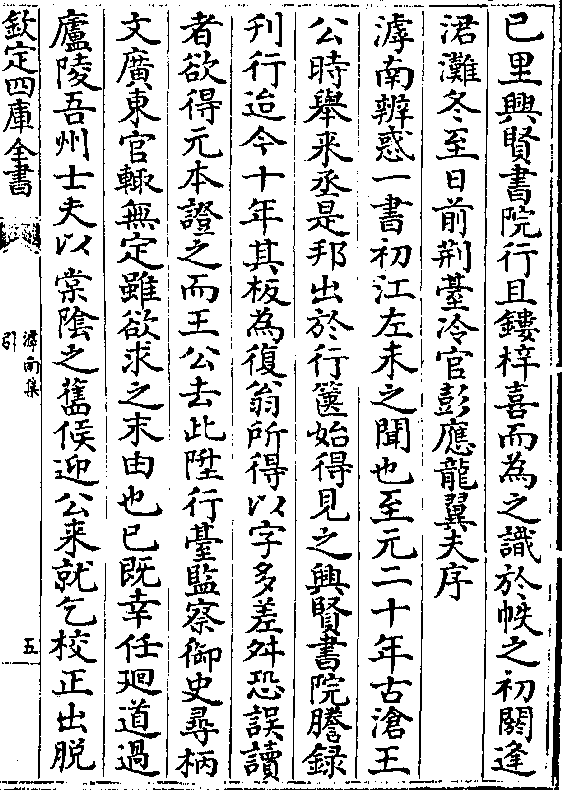 已里興賢書院行且鏤梓喜而為之識於帙之初閼逢
涒灘冬至日前荆臺冷官彭應龍翼夫序
滹南辨惑一書初江左未之聞也至元二十年古滄王
公時舉来丞是邦出於行篋始得見之興賢書院謄録
刋行迨今十年其板為復翁所得以字多差舛恐誤讀
者欲得元本證之而王公去此陞行臺監察御史尋柄
文廣東官轍無定雖欲求之末由也已既幸任廻道過
廬陵吾州士夫以棠隂之舊候迎公来就乞校正出脱
欽定四庫全書
滹南集
引
五